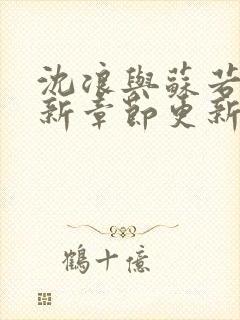 沈浪與蘇若
新章節更新
鶴十億